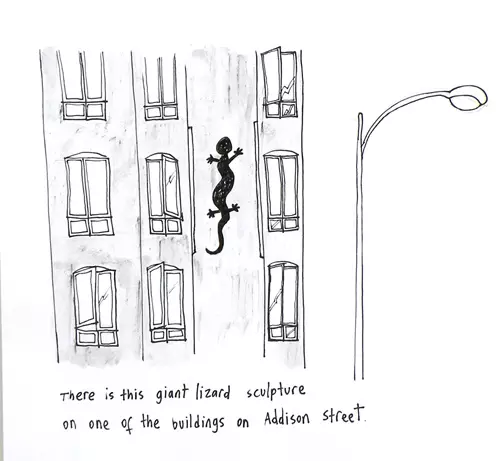 There is this giant lizard sculpture
on one of the buildings on Addison street.